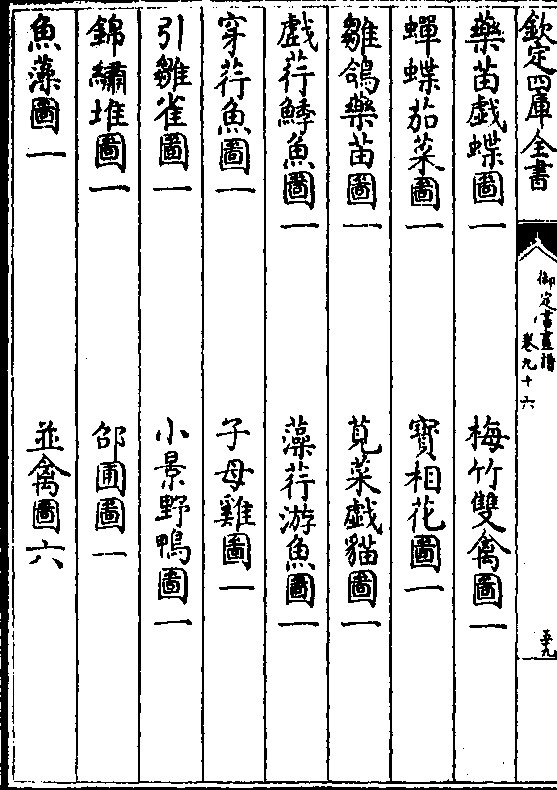 欽定四庫全書
御定書畫譜
卷九十六
五九
藥苗戯蝶圖一　梅竹雙禽圖一
蟬蝶茄菜圖一　寶相花圖一
雛鴿藥苗圖一　莧菜戯貓圖一
戯荇魚圖一　藻荇游魚圖一
穿荇魚圖一　子母雞圖一
引雛雀圖一　小景野鴨圖一
錦繡堆圖一　邵圃圖一
魚藻圖一　並禽圖六